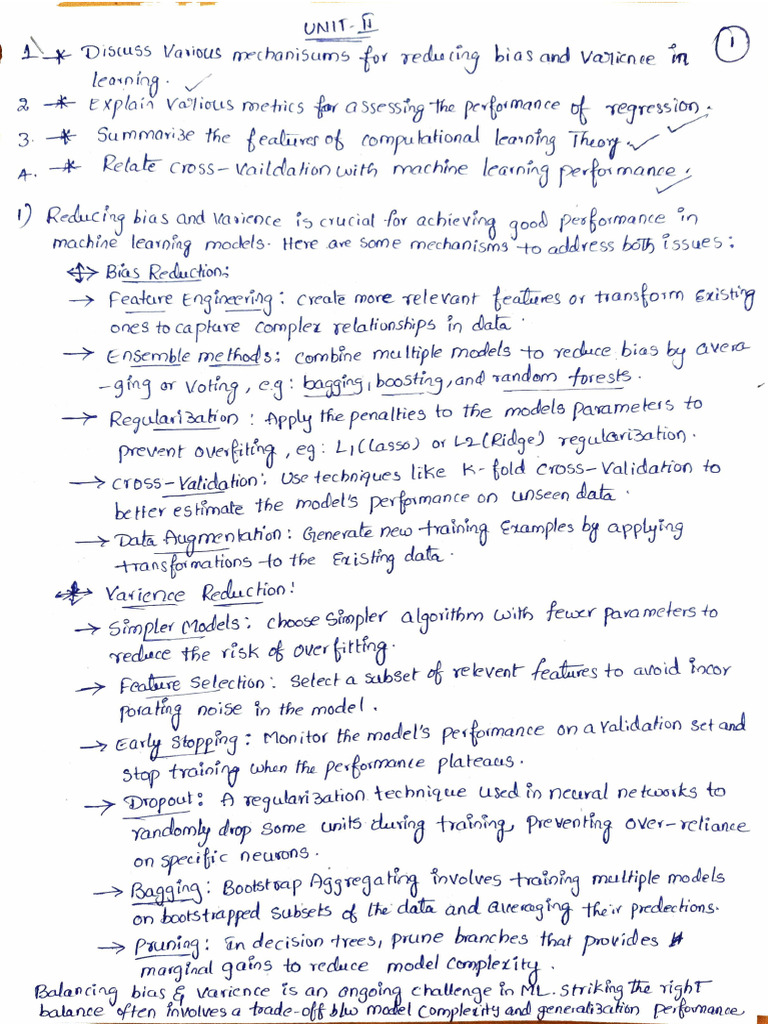 UNIT-II
1
1 * Discuss Various mechanisums for reducing bias and Varience in
learning.
2 * Explain Various metrics for assessing the performance of regression.
3. * Summarise the features of computational learning Theory
4. * Relate cross-vaildation with machine learning performance.
1) Reducing bias and varience is crucial for achieving good performance in
machine learning models. Here are some mechanisms to address both issues:
Bias Reduction:
→ Feature Engineering: create more relevant features or transform Existing
ones to capture complex relationships in data.
→ Ensemble methods: combine multiple models to reduce bias by avera
-ging or voting, e.g: bagging, boosting, and random forests.
→ Regularization: Apply the penalties to the models parameters to
prevent overfiting, eg: L1(Lasso) or L2(Ridge) regularization.
→ cross-Validation: Use techniques like K-fold cross-Validation to
better estimate the model's performance on unseen data.
→ Data Augmentation: Generate new training Examples by applying
transformations to the Existing data.
* Varience Reduction:
→ Simpler Models: choose simpler algorithm with fewer parameters to
reduce the risk of overfitting.
→ Feature Selection: select a subset of relevent features to avoid incor
porating noise in the model.
→ Early Stopping: Monitor the model's performance on a validation set and
stop training when the performance plateaus.
→ Dropout: A regularization technique used in neural networks to
randomly drop some units during training, preventing over-reliance
on specific neurons.
→ Bagging: Bootstrap Aggregating involves training multiple models
on bootstrapped subsets of the data and averaging their predections.
→ Pruning: In decision trees, prune branches that provides
marginal gains to reduce model complexity.
Balancing bias & varience is an ongoing challenge in ML. striking the right
balance often involves a trade-off b/w model complexity and generalization performance